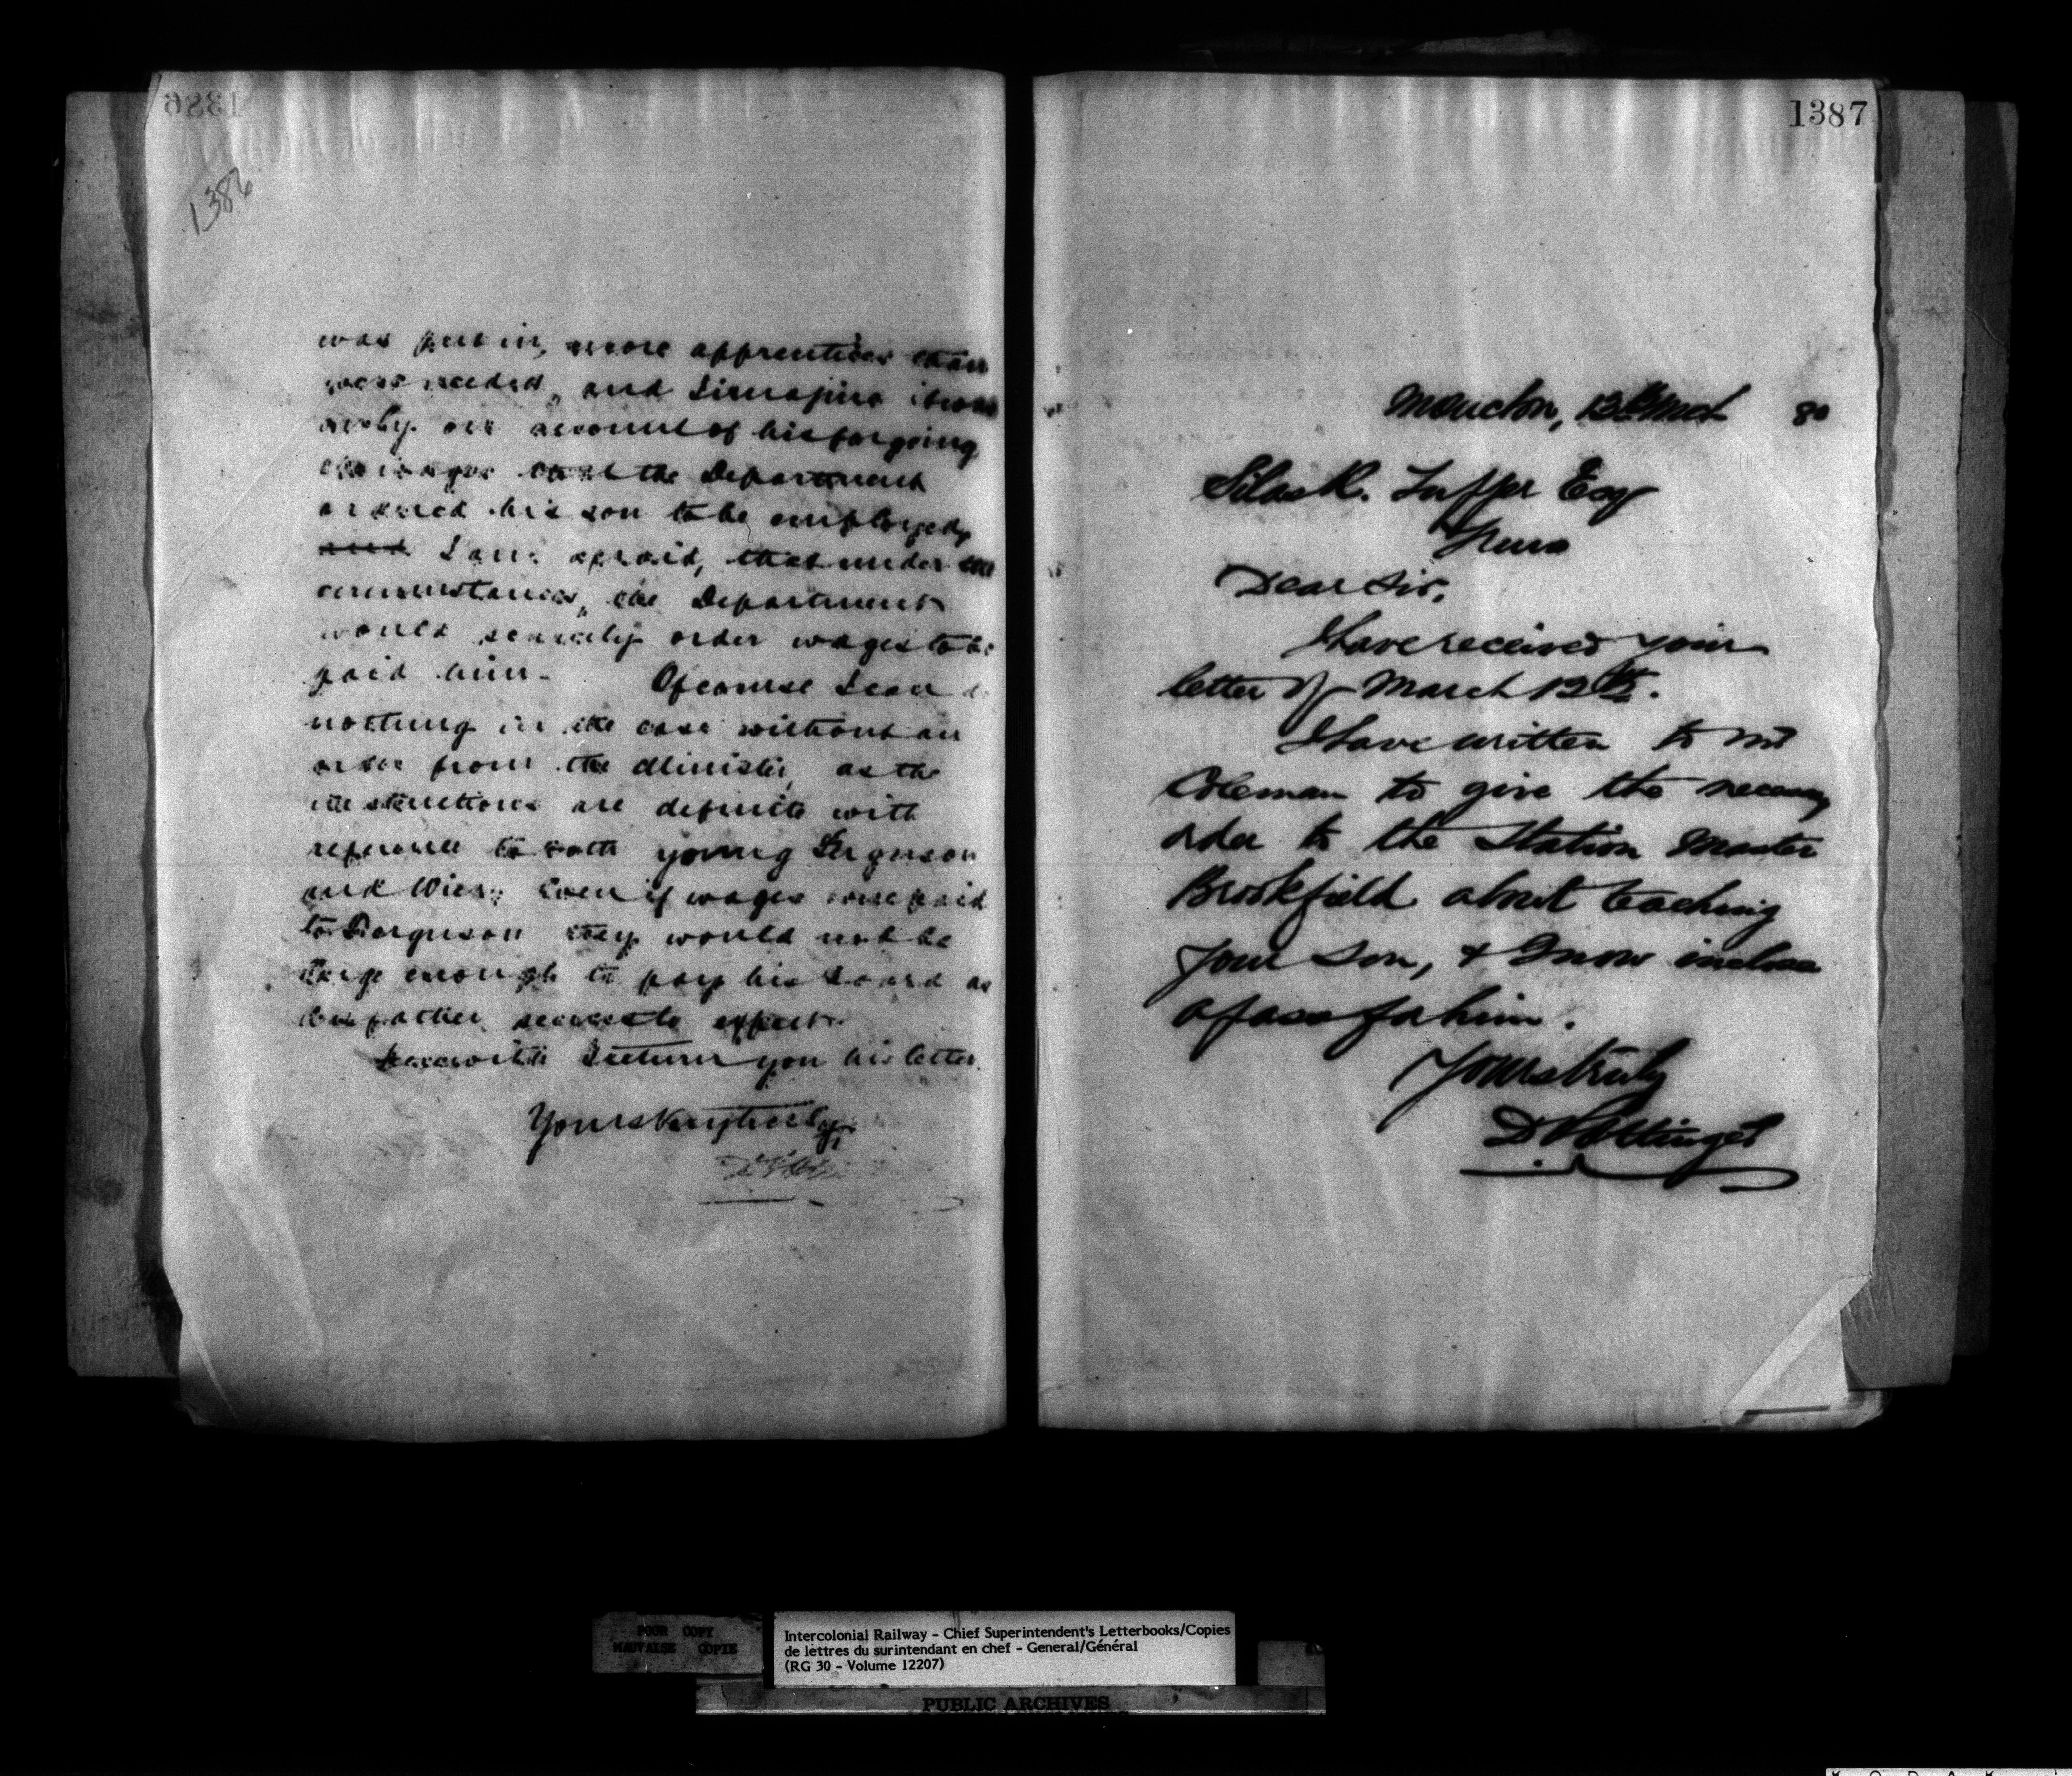 1386
1386
was put in, more apprentices than
were needed, and Simapine it was
only on account of his forgoing
the wages that the Department
ordered his son to be employed,
and I am afraid, that under the
circumstances, the Department
would scarcely order wages to be
paid him. Of course I can do
nothing in the case without an
order from the Minister, as the
instructions are definite with
reference to both young Ferguson
and Wier. Even if wages were paid
to Ferguson they would not be
large enough to pay his board as
his father seems to expect.
Herewith I return you his letter.
Yours very truly,
1387
Moncton, 13th Mch 80
Silas R. Tupper Esq
Truro
Dear Sir,
I have received your
letter of March 12th.
I have written to Mr
Coleman to give the necessary
order to the Station Master
Brookfield about teaching
your son, & I now inclose
a pass for him.
Yours truly
D Pottinger
POOR COPY
MAUVAISE COPIE
Intercolonial Railway - Chief Superintendent's Letterbooks/Copies
de lettres du surintendant en chef - General/Général
(RG 30 - Volume 12207)
PUBLIC ARCHIVES